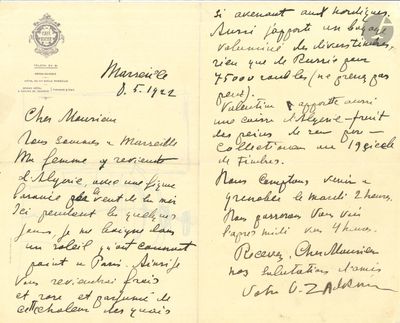 CAFÉ
Marseille
8.5.1922
Cher Monsieur
Nous sommes à Marseille
Ma femme y revient
d'Algerie, avec une figure
bronzée par le vent de la mer
Ici pendant les quelques
jours, je me baigne dans
un soleil qu'on connait
point à Paris. Ainsi je
vous reviendrai frais
et rose et parfumé de
chaleur des quais
si avenant aux nordiques.
Aussi j'apporte un bagage
volumine des divers timbres,
rien que de Russie pour
45000 roubles (ne
peur).
Valentine apporte aussi
une caisse d'Algerie fruit
des peines de
collectionneur
de Timbres.
Nous comptons venir à
Grenoble le mardi 2 heures.
Nous passerons vous voir
l'après midi vers 4 heures.
Recevez, Cher Monsieur
nos salutations d'amis
Votre O. Zadkine